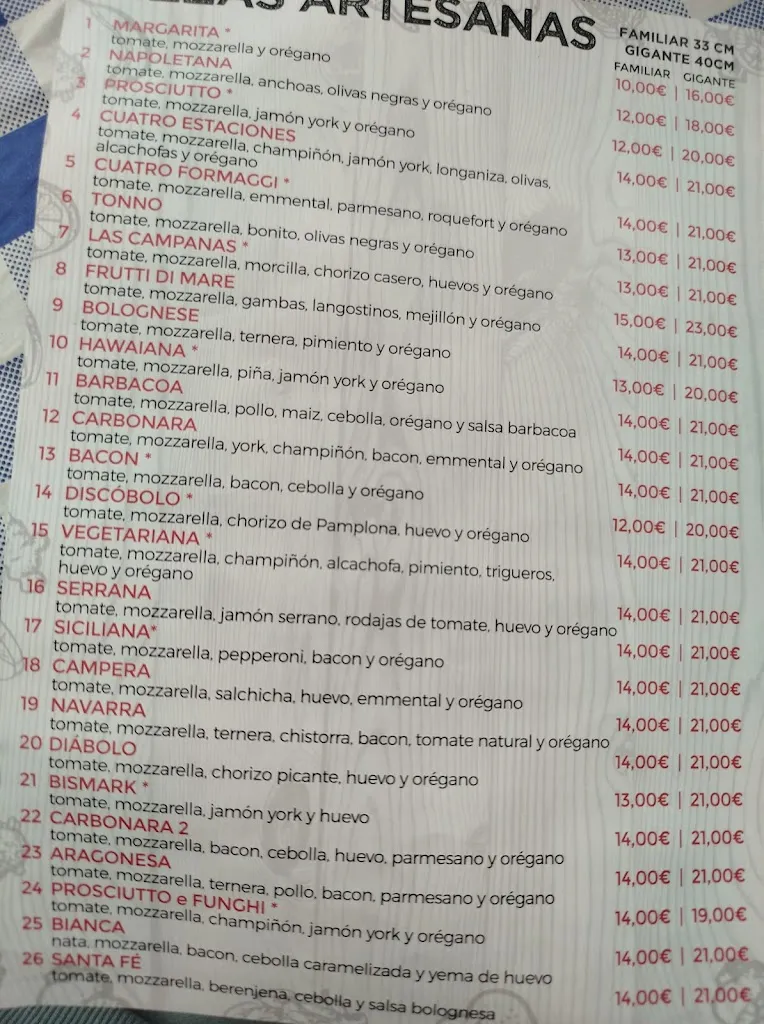 ARTESANAS
FAMILIAR 33 CM
GIGANTE 40CM
FAMILIAR GIGANTE
1 MARGARITA * 10,00€ | 16,00€
tomate, mozzarella y orégano
2 NAPOLETANA 12,00€ | 18,00€
tomate, mozzarella, anchoas, olivas negras y orégano
3 PROSCIUTTO * 12,00€ | 20,00€
tomate, mozzarella, jamón york y orégano
4 CUATRO ESTACIONES 14,00€ | 21,00€
tomate, mozzarella, champiñón, jamón york, longaniza, olivas,
alcachofas y orégano
5 CUATRO FORMAGGI * 14,00€ | 21,00€
tomate, mozzarella, emmental, parmesano, roquefort y orégano
6 TONNO 13,00€ | 21,00€
tomate, mozzarella, bonito, olivas negras y orégano
7 LAS CAMPANAS * 13,00€ | 21,00€
tomate, mozzarella, morcilla, chorizo casero, huevos y orégano
8 FRUTTI DI MARE 15,00€ | 23,00€
tomate, mozzarella, gambas, langostinos, mejillón y orégano
9 BOLOGNESE 14,00€ | 21,00€
tomate, mozzarella, ternera, pimiento y orégano
10 HAWAIANA * 13,00€ | 20,00€
tomate, mozzarella, piña, jamón york y orégano
11 BARBACOA 14,00€ | 21,00€
tomate, mozzarella, pollo, maiz, cebolla, orégano y salsa barbacoa
12 CARBONARA 14,00€ | 21,00€
tomate, mozzarella, york, champiñón, bacon, emmental y orégano
13 BACON * 14,00€ | 21,00€
tomate, mozzarella, bacon, cebolla y orégano
14 DISCÓBOLO * 12,00€ | 20,00€
tomate, mozzarella, chorizo de Pamplona, huevo y orégano
15 VEGETARIANA * 14,00€ | 21,00€
tomate, mozzarella, champiñón, alcachofa, pimiento, trigueros,
huevo y orégano
16 SERRANA 14,00€ | 21,00€
tomate, mozzarella, jamón serrano, rodajas de tomate, huevo y orégano
17 SICILIANA* 14,00€ | 21,00€
tomate, mozzarella, pepperoni, bacon y orégano
18 CAMPERA 14,00€ | 21,00€
tomate, mozzarella, salchicha, huevo, emmental y orégano
19 NAVARRA 14,00€ | 21,00€
tomate, mozzarella, ternera, chistorra, bacon, tomate natural y orégano
20 DIÁBOLO 14,00€ | 21,00€
tomate, mozzarella, chorizo picante, huevo y orégano
21 BISMARK * 13,00€ | 21,00€
tomate, mozzarella, jamón york y huevo
22 CARBONARA 2 14,00€ | 21,00€
tomate, mozzarella, bacon, cebolla, huevo, parmesano y orégano
23 ARAGONESA 14,00€ | 21,00€
tomate, mozzarella, ternera, pollo, bacon, parmesano y orégano
24 PROSCIUTTO e FUNGHI * 14,00€ | 19,00€
tomate, mozzarella, champiñón, jamón york y orégano
25 BIANCA 14,00€ | 21,00€
nata, mozzarella, bacon, cebolla caramelizada y yema de huevo
26 SANTA FÉ 14,00€ | 21,00€
tomate, mozzarella, berenjena, cebolla y salsa bolognesa